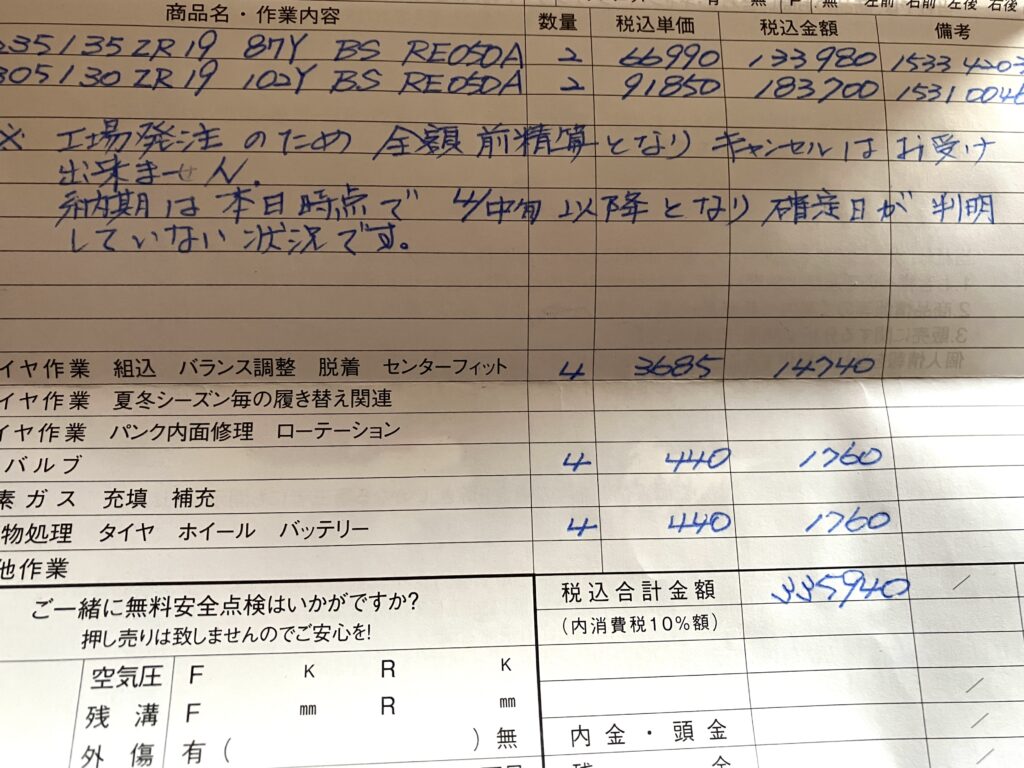 左前 右前 左後 右後
商品名・作業内容 数量 税込単価 税込金額 備考
235/35ZR19 87Y BS RE050A 2 66990 133980 15334203
305/30ZR19 102Y BS RE050A 2 91850 183700 15310046
※ 工場発注のため 全額前精算となり キャンセルはお受け
出来ません.
納期は本日時点で 4/中旬 以降となり 確定日が判明
していない状況です。
イヤ作業 組込 バランス調整 脱着 センターフィット 4 3685 14740
イヤ作業 夏冬シーズン毎の履き替え関連
イヤ作業 パンク内面修理 ローテーション
バルブ 4 440 1760
素ガス 充填 補充
物処理 タイヤ ホイール バッテリー 4 440 1760
他作業
税込合計金額 335940
(内消費税10%額)
ご一緒に無料安全点検はいかがですか?
押し売りは致しませんのでご安心を!
空気圧 F K R K
残溝 F mm R mm
外傷 有( )無
内金・頭金